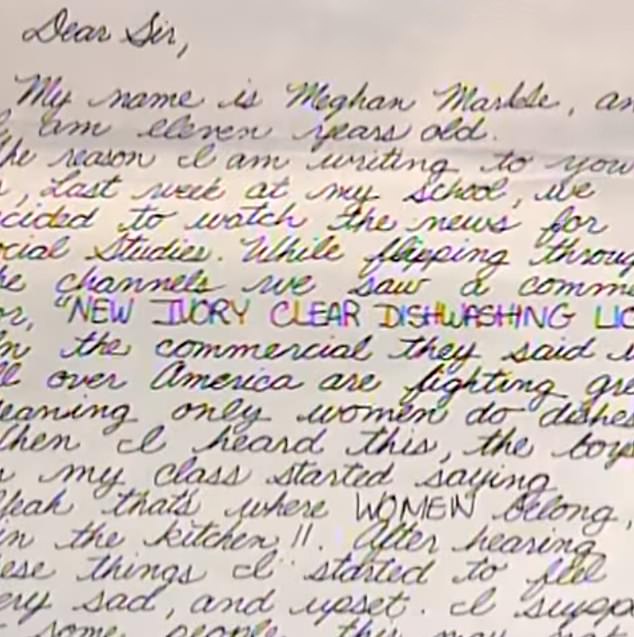 Dear Sir,
My name is Meghan Markle, an
I am eleven years old.
he reason I am writing to you
s, Last week at my school, we
cided to watch the news for
ocial Studies. While flipping throug
he channels we saw a comme
or, "NEW IVORY CLEAR DISHWASHING LIC
In the commercial they said
ll over America are fighting gre
eaning only women do dishes
hen I heard this, the boys
n my class started saying
Yeah that's where WOMEN belong,
in the kitchen!!. After hearing
ese things I started to feel
ery sad, and upset. I suppo
some people this may